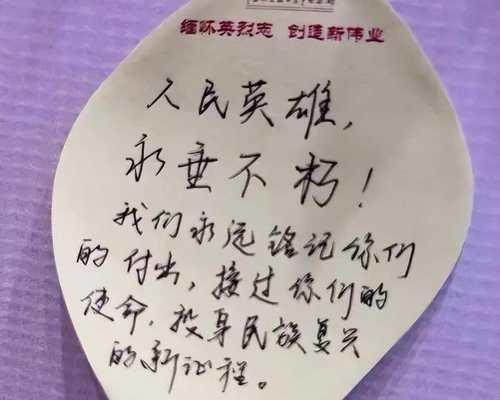 缅怀英烈志 创造新伟业
人民英雄，
永垂不朽！
我们永远铭记你们
的付出，接过你们的
使命，投身民族复兴
的新征程。